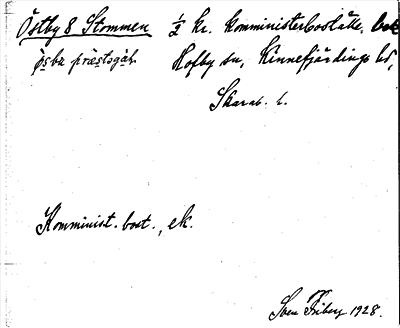 Östby 8 Stommen ½ kr. komministerboställe,
ösbu præstogáḷ Hofby sn, Kinnefjärdings hd,
Skarab. l.
Komminist. bost., ek.
Sven Friberg 1928.